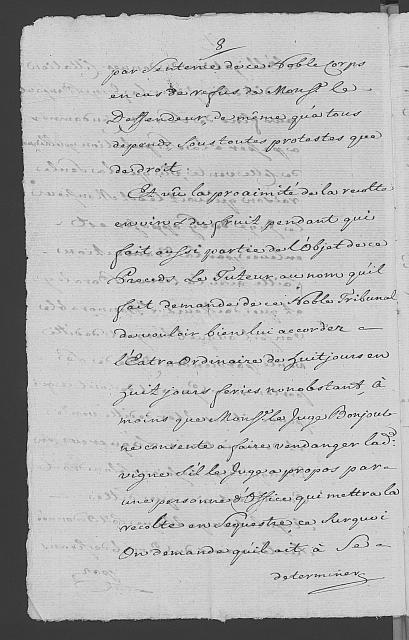 8
par Sentence de ce Noble Corps
en cas de refus de Mons.r le
Deffendeur de même qu'à tous
depends sous toutes protestes que
de droit.
Et vû la proximité de la recolte
en vin & du fruit pendant qui
fait aussi partie de l'Objet de ce
Procedé. Le Tuteur, au nom qu'il
fait demande de ce Noble Tribunal
de vouloir bien lui accorder
l'Extra Ordinaire de huit jours en
huit jours feries nonobstant, à
moins que Mons.r le Juge Bonjour
ne consente à faire vendanger lad.e
vigne S'il le Juge a propos par
une personne d'Office qui mettra la
recolte en Sequestre, ce Surquoi
On demande qu'il ait à Se
determiner